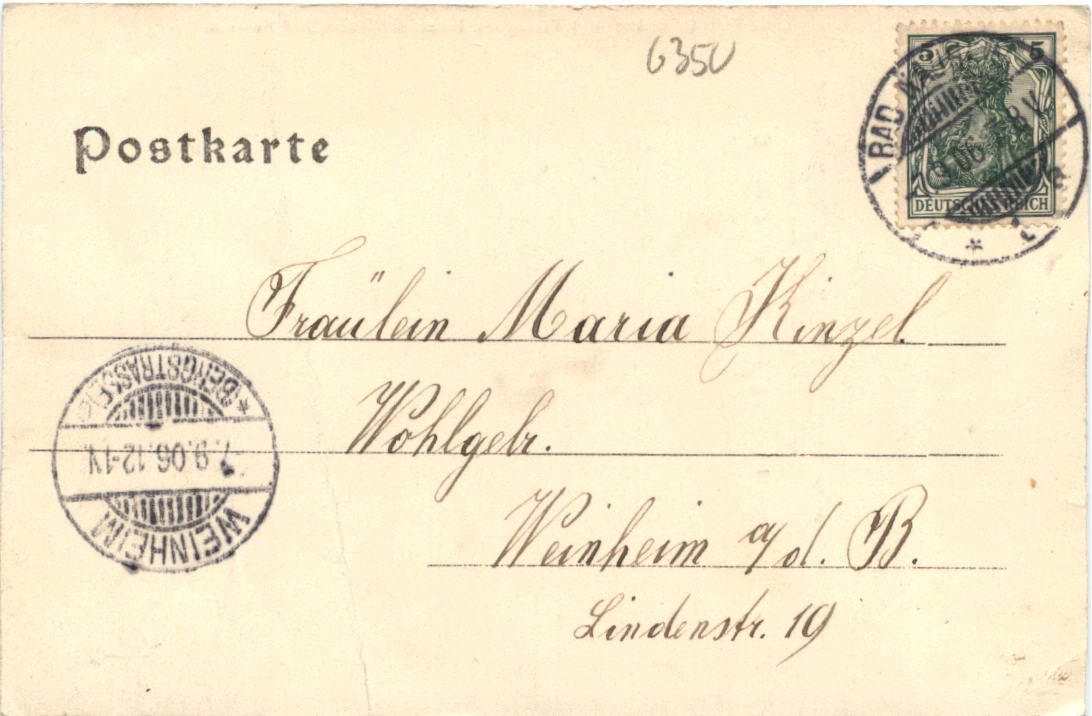 6350
5 5
BAD
8 V.
9.06
DEUTSCHES REICH
Postkarte
Fräulein Maria Kinzel.
Wohlgebr.
Weinheim a/d. B.
Lindenstr. 19
WEINHEIM
7.9.06.12-1V.
*(BERGSTRASSE)*